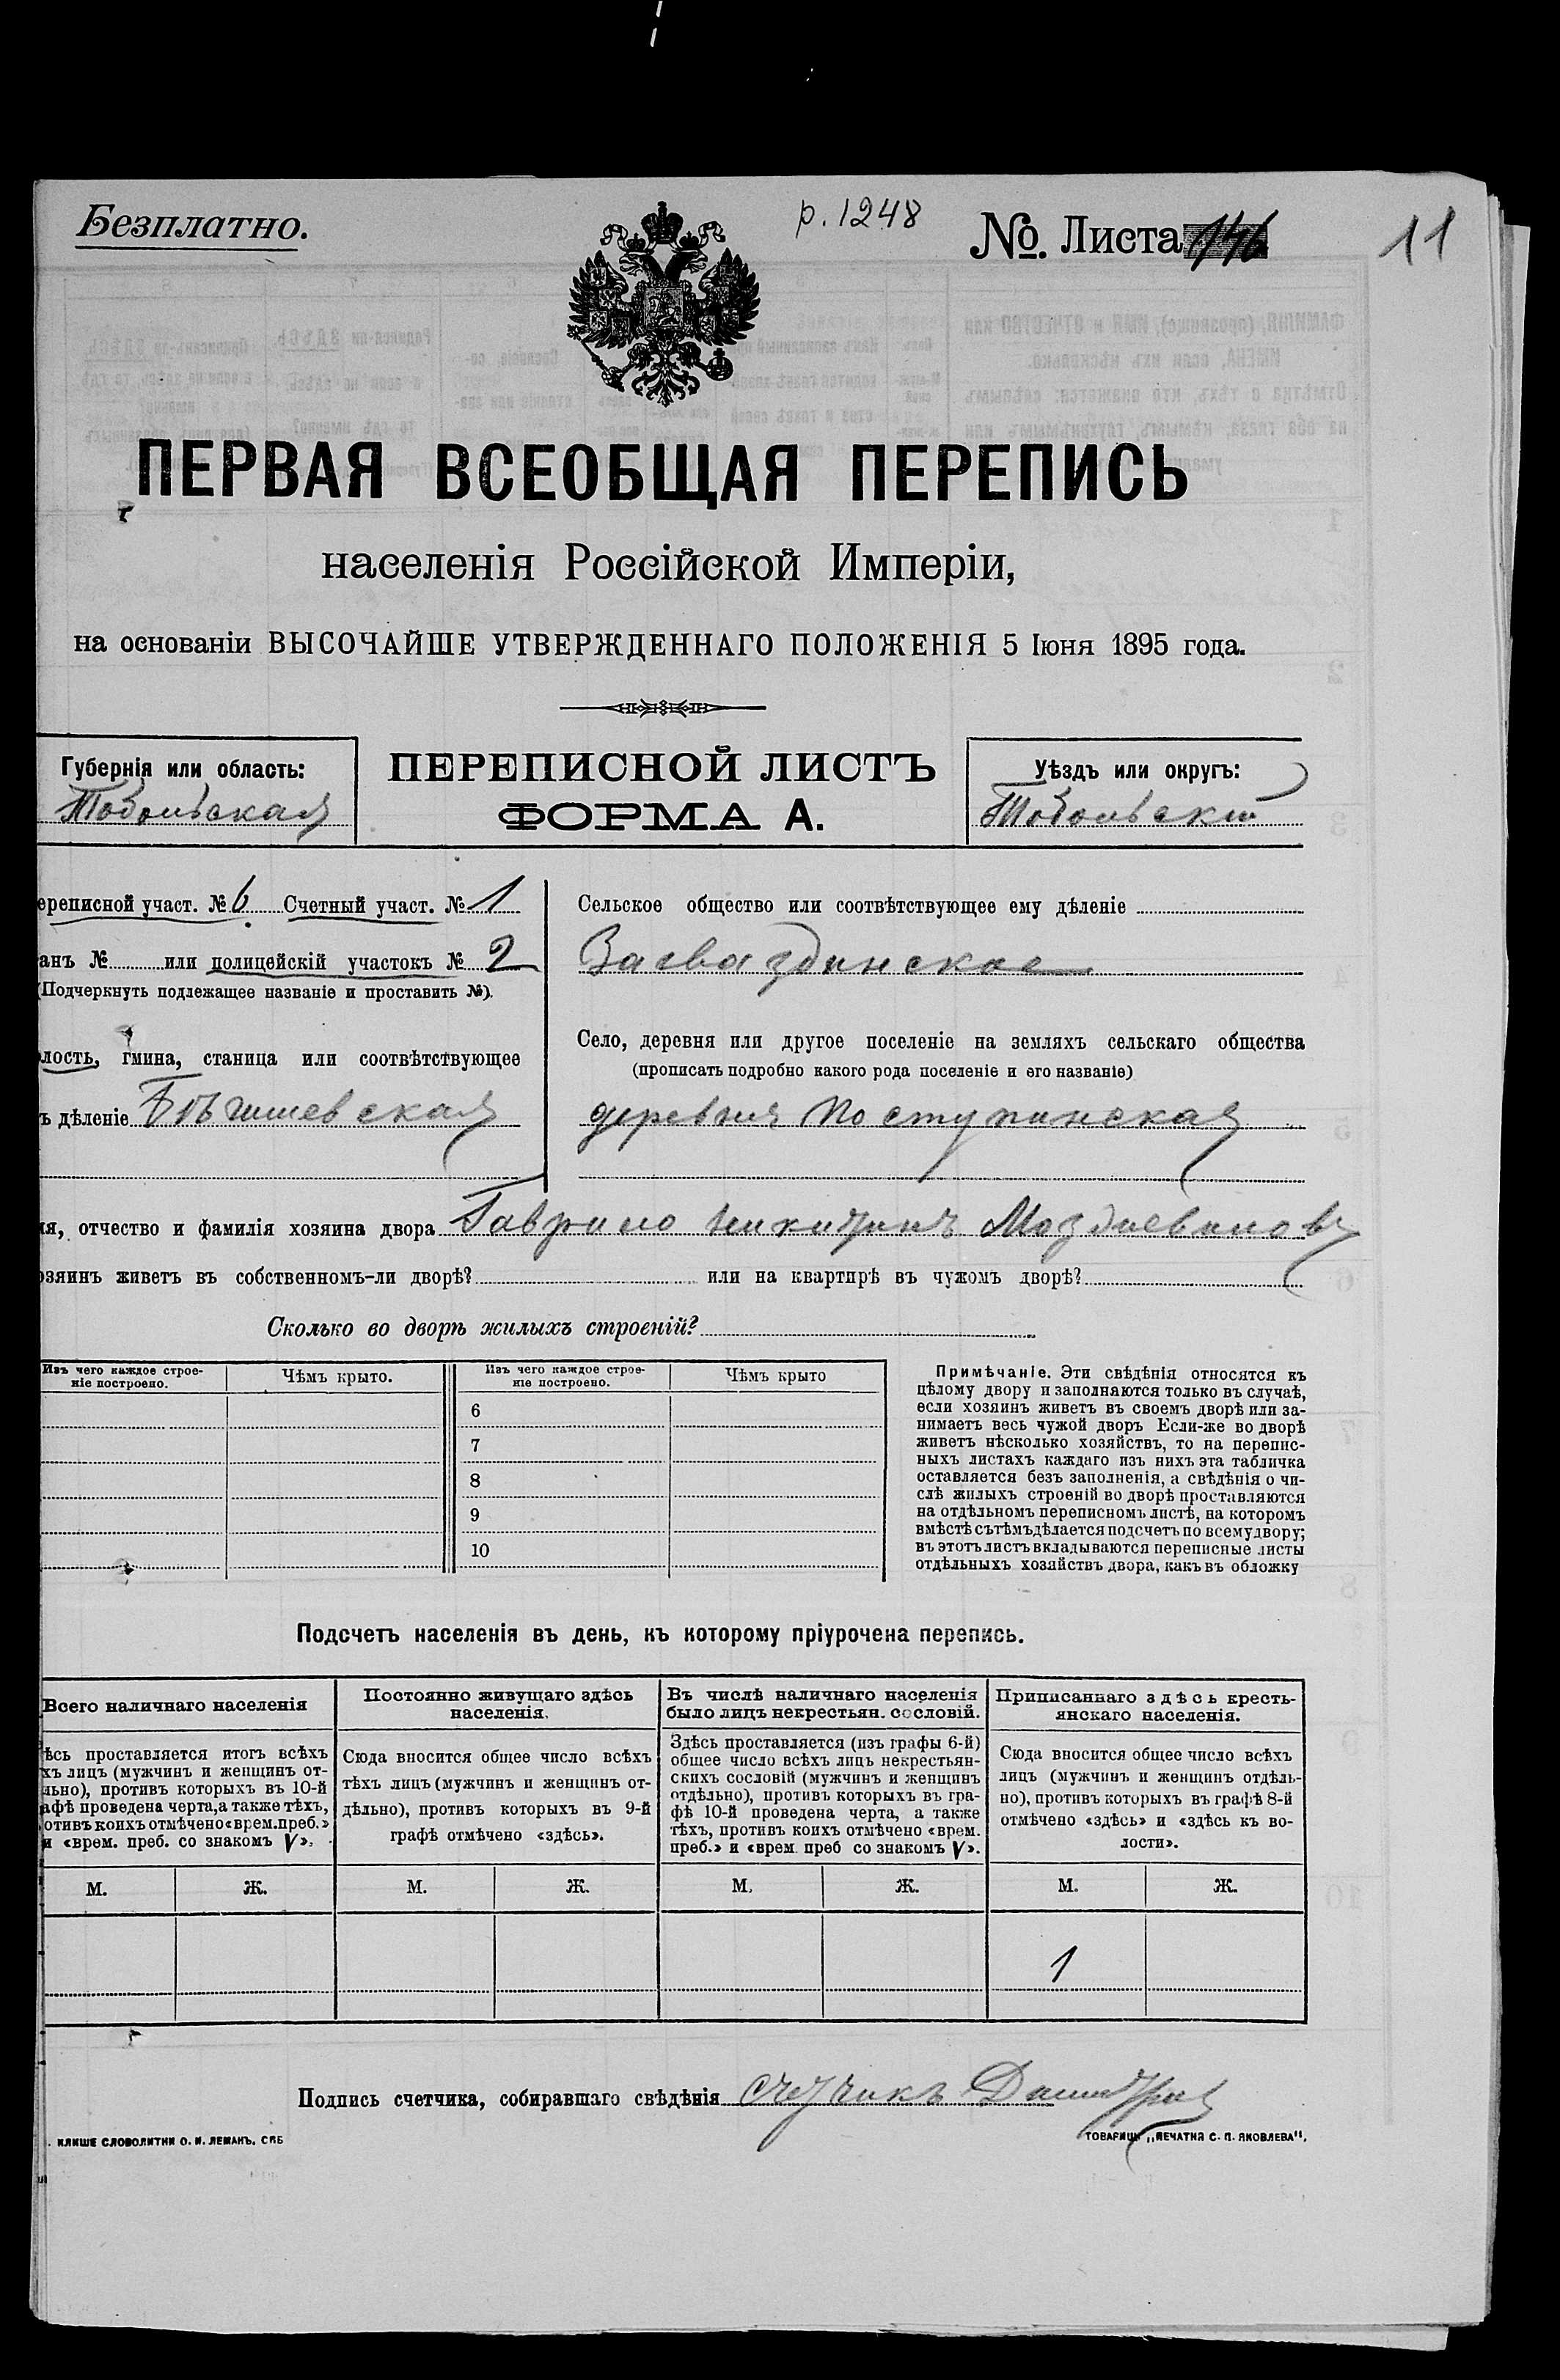 Безплатно.
р. 1248
№. Листа 146
11
ПЕРВАЯ ВСЕОБЩАЯ ПЕРЕПИСЬ
населенія Россійской Имперіи,
на основаніи ВЫСОЧАЙШЕ УТВЕРЖДЕННАГО ПОЛОЖЕНІЯ 5 Іюня 1895 года.
Губернія или область:
Тобольская
ПЕРЕПИСНОЙ ЛИСТЪ
ФОРМА А.
Уѣздъ или округъ:
Тобольскій
ереписной участ. № 6 Счетный участ. № 1
анъ № или полицейскій участокъ № 2
(Подчеркнуть подлежащее названіе и проставить №).
лость, гмина, станица или соотвѣтствующее
ъ дѣленіе Бѣгишевская
Сельское общество или соотвѣтствующее ему дѣленіе
Загваздинское
Село, деревня или другое поселеніе на земляхъ сельскаго общества
(прописать подробно какого рода поселеніе и его названіе)
деревня Поступинская
ия, отчество и фамилія хозяина двора Гаврило Никитинъ
озяинъ живетъ въ собственномъ-ли дворѣ? или на квартирѣ въ чужомъ дворѣ?
Сколько во дворѣ жилыхъ строеній?
Изъ чего каждое строе-
ніе построено.
Чѣмъ крыто.
Изъ чего каждое строе-
ніе построено.
Чѣмъ крыто
6
7
8
9
10
Примѣчаніе. Эти свѣдѣнія относятся къ
цѣлому двору и заполняются только въ случаѣ,
если хозяинъ живетъ въ своемъ дворѣ или за-
нимаетъ весь чужой дворъ Если-же во дворѣ
живетъ нѣсколько хозяйствъ, то на перепис-
ныхъ листахъ каждаго изъ нихъ эта табличка
оставляется безъ заполненія, а свѣдѣнія о чи-
слѣ жилыхъ строеній во дворѣ проставляются
на отдѣльномъ переписномъ листѣ, на которомъ
вмѣстѣ съ тѣмъ дѣлается подсчетъ по всему двору;
въ этотъ листъ вкладываются переписные листы
отдѣльныхъ хозяйствъ двора, какъ въ обложку
Подсчетъ населенія въ день, къ которому пріурочена перепись.
Всего наличнаго населенія
ѣсь проставляется итогъ всѣхъ
хъ лицъ (мужчинъ и женщинъ от-
льно), противъ которыхъ въ 10-й
афѣ проведена черта, а также тѣхъ,
отивъ коихъ отмѣчено «врем. преб.»
и «врем. преб. со знакомъ V».
Постоянно живущаго здѣсь
населенія.
Сюда вносится общее число всѣхъ
тѣхъ лицъ (мужчинъ и женщинъ от-
дѣльно), противъ которыхъ въ 9-й
графѣ отмѣчено «здѣсь».
Въ числѣ наличнаго населенія
было лицъ некрестьян. сословій.
Здѣсь проставляется (изъ графы 6-й)
общее число всѣхъ лицъ некрестьян-
скихъ сословій (мужчинъ и женщинъ
отдѣльно), противъ которыхъ въ гра-
фѣ 10-й проведена черта, а также
тѣхъ, противъ коихъ отмѣчено «врем.
преб.» и «врем. преб со знакомъ V».
Приписаннаго здѣсь кресть-
янскаго населенія.
Сюда вносится общее число всѣхъ
лицъ (мужчинъ и женщинъ отдѣль-
но), противъ которыхъ въ графѣ 8-й
отмѣчено «здѣсь» и «здѣсь къ во-
лости».
М. Ж. М. Ж. М. Ж. М. Ж.
1
Подпись счетчика, собиравшаго свѣдѣнія счетчикъ
КЛИШЕ СЛОВОЛИТНИ О. И. ЛЕМАНЪ. СПБ
ТОВАРИЩ „ПЕЧАТНЯ С. П. ЯКОВЛЕВА".